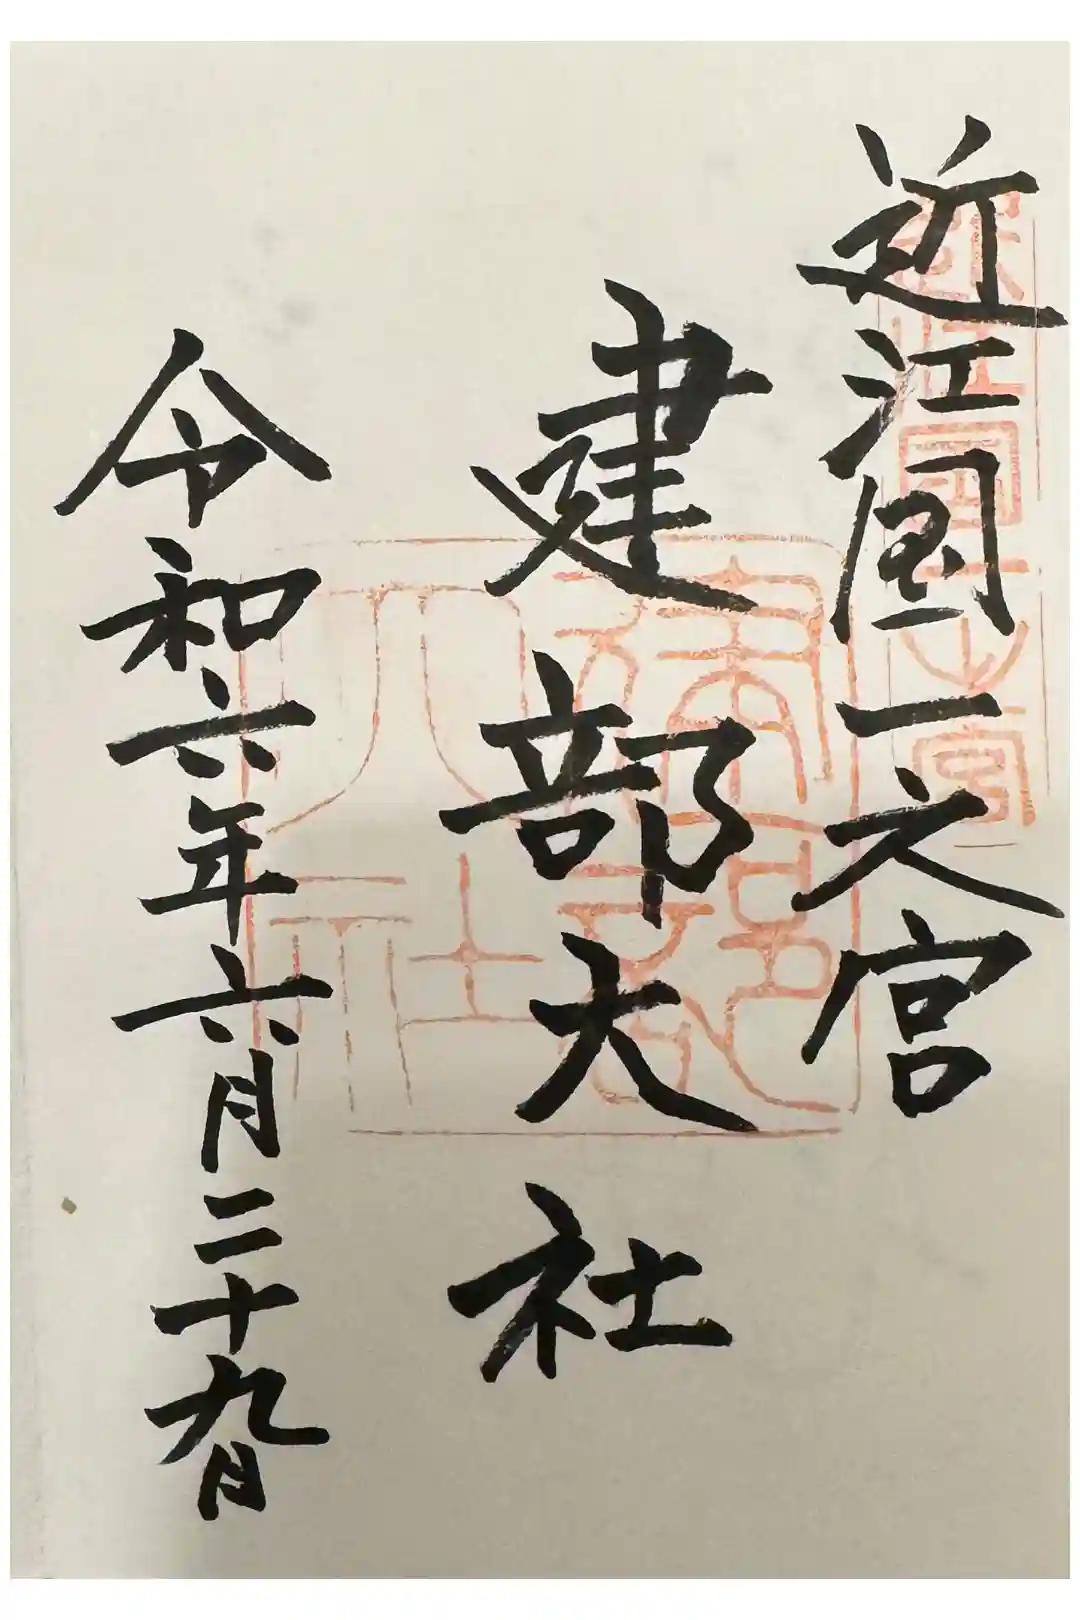 近江国一之宮
建部大社
令和六年六月二十九日
近江國一之宮
建部大社